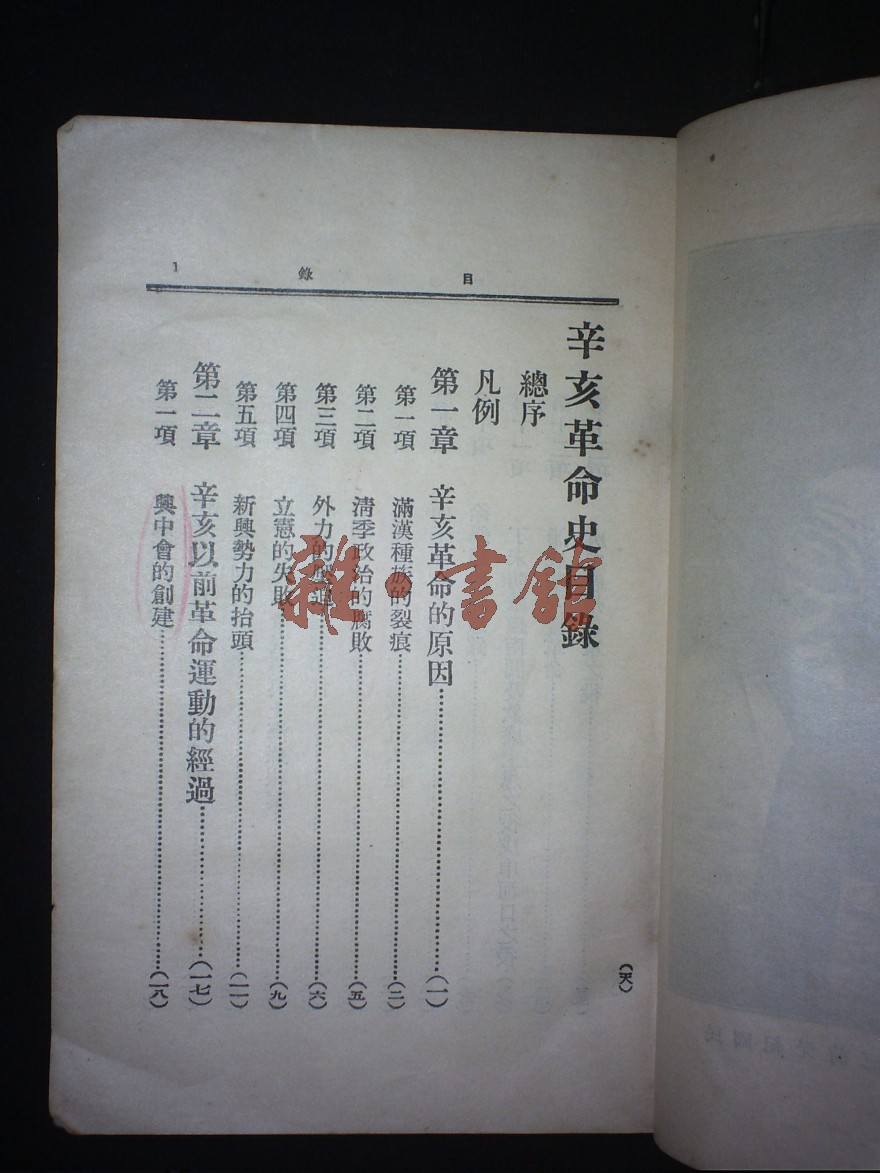 目錄 1
辛亥革命史目錄
總序
凡例
第一章 辛亥革命的原因(一)
第一項 滿漢種族的裂痕(二)
第二項 清季政治的腐敗(五)
第三項 外力的壓迫(六)
第四項 立憲的失敗(九)
第五項 新興勢力的抬頭(一一)
第二章 辛亥以前革命運動的經過(一七)
第一項 興中會的創建(一八)
(天)
雜·書館